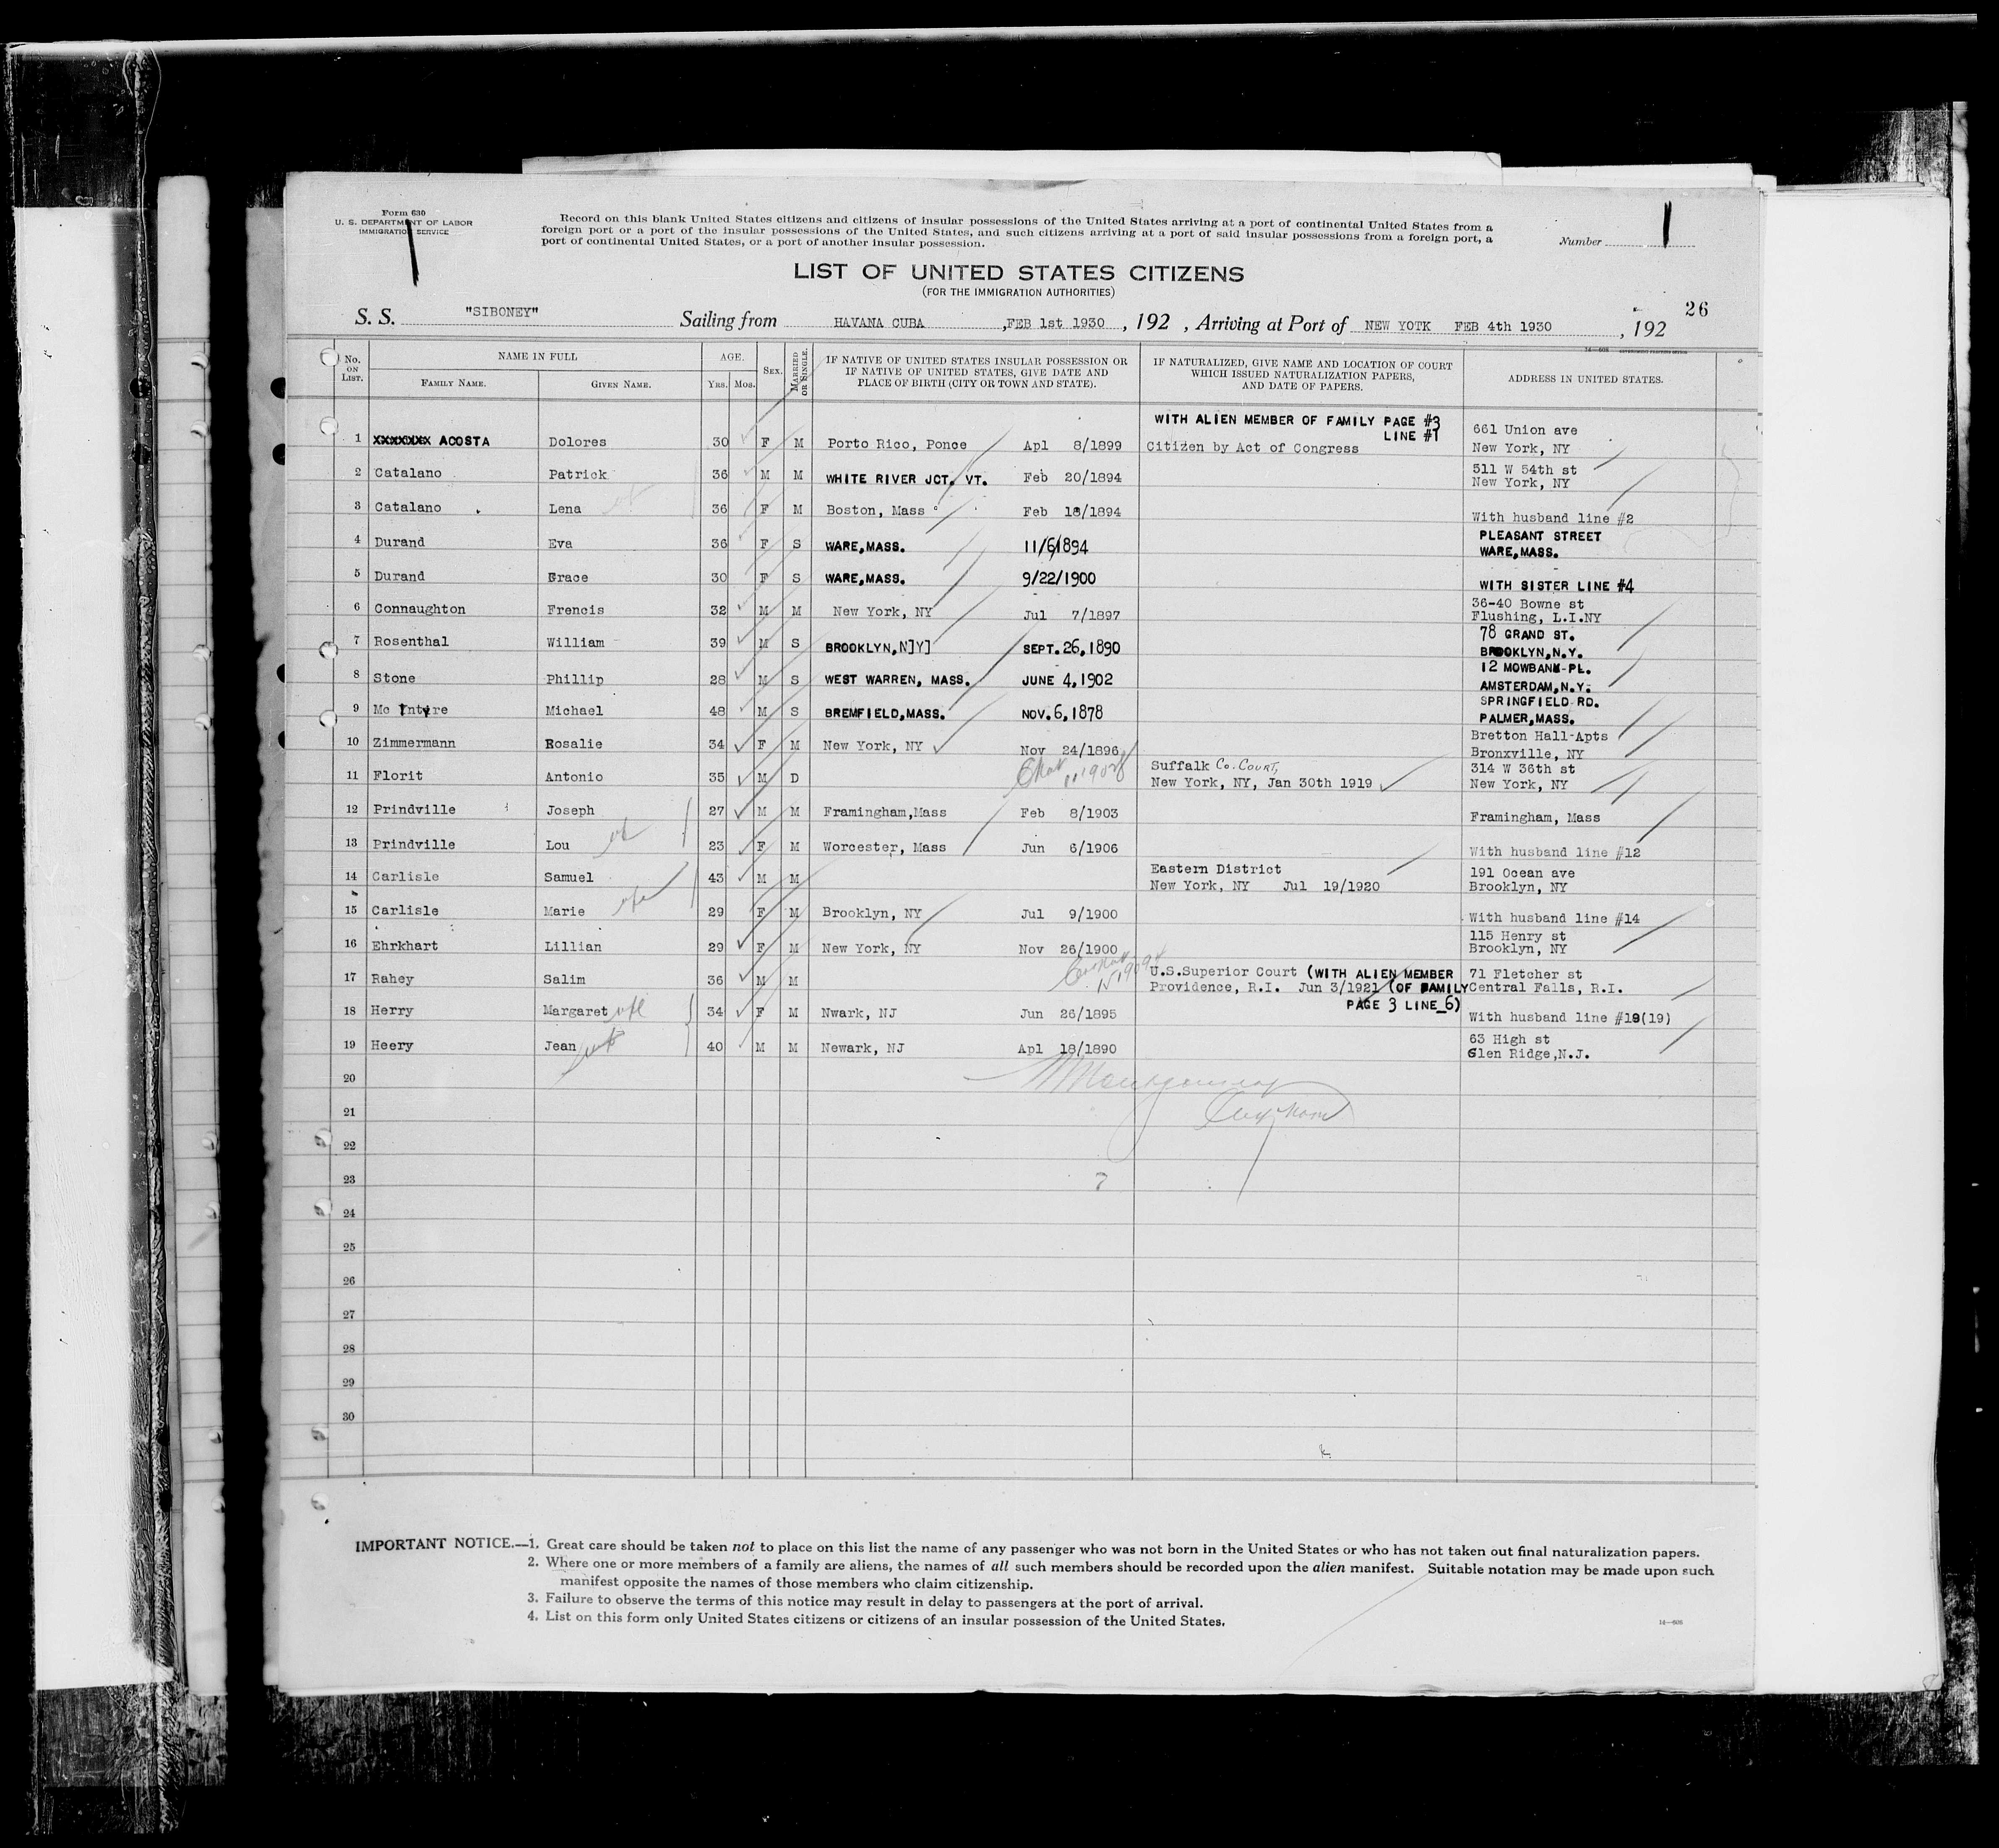 Form 630
U. S. DEPARTMENT OF LABOR
IMMIGRATION SERVICE
Record on this blank United States citizens and citizens of insular possessions of the United States arriving at a port of continental United States from a
foreign port or a port of the insular possessions of the United States, and such citizens arriving at a port of said insular possessions from a foreign port, a
port of continental United States, or a port of another insular possession.
Number
LIST OF UNITED STATES CITIZENS
(FOR THE IMMIGRATION AUTHORITIES)
26
S. S. "SIBONEY" Sailing from HAVANA CUBA ,FEB 1st 1930 , 192 , Arriving at Port of NEW YOTK FEB 4th 1930 , 192
No. ON LIST. NAME IN FULL AGE. SEX. MARRIED OR SINGLE. IF NATIVE OF UNITED STATES INSULAR POSSESSION OR IF NATIVE OF UNITED STATES, GIVE DATE AND PLACE OF BIRTH (CITY OR TOWN AND STATE). IF NATURALIZED, GIVE NAME AND LOCATION OF COURT WHICH ISSUED NATURALIZATION PAPERS, AND DATE OF PAPERS. ADDRESS IN UNITED STATES.
FAMILY NAME. GIVEN NAME. YRS. MOS.
WITH ALIEN MEMBER OF FAMILY PAGE #3
LINE #1
1 XXXXXXX ACOSTA Dolores 30 F M Porto Rico, Ponce Apl 8/1899 Citizen by Act of Congress 661 Union ave
New York, NY
2 Catalano Patrick 36 M M WHITE RIVER JCT. VT. Feb 20/1894 511 W 54th st
New York, NY
3 Catalano Lena 36 F M Boston, Mass Feb 18/1894 With husband line #2
4 Durand Eva 36 F S WARE,MASS. 11/6/1894 PLEASANT STREET
WARE,MASS.
5 Durand Grace 30 F S WARE,MASS. 9/22/1900 WITH SISTER LINE #4
6 Connaughton Frencis 32 M M New York, NY Jul 7/1897 36-40 Bowne st
Flushing, L.I.NY
7 Rosenthal William 39 M S BROOKLYN,N]Y] SEPT.26,1890 78 GRAND ST.
BROOKLYN,N.Y.
8 Stone Phillip 28 M S WEST WARREN, MASS. JUNE 4,1902 12 MOWBANK-PL.
AMSTERDAM,N.Y.
9 Mc Intyre Michael 48 M S BREMFIELD,MASS. NOV.6,1878 SPRINGFIELD RD.
PALMER,MASS.
10 Zimmermann Rosalie 34 F M New York, NY Nov 24/1896 Bretton Hall-Apts
Bronxville, NY
11 Florit Antonio 35 M D Suffalk Co. Court, 314 W 36th st
New York, NY, Jan 30th 1919 New York, NY
12 Prindville Joseph 27 M M Framingham,Mass Feb 8/1903 Framingham, Mass
13 Prindville Lou 23 F M Worcester, Mass Jun 6/1906 With husband line #12
14 Carlisle Samuel 43 M M Eastern District 191 Ocean ave
New York, NY Jul 19/1920 Brooklyn, NY
15 Carlisle Marie 29 F M Brooklyn, NY Jul 9/1900 With husband line #14
16 Ehrkhart Lillian 29 F M New York, NY Nov 26/1900 115 Henry st
Brooklyn, NY
17 Rahey Salim 36 M M U.S.Superior Court (WITH ALIEN MEMBER 71 Fletcher st
Providence, R.I. Jun 3/1921 (OF FAMILY Central Falls, R.I.
PAGE 3 LINE 6)
18 Herry Margaret 34 F M Nwark, NJ Jun 26/1895 With husband line #19(19)
19 Heery Jean 40 M M Newark, NJ Apl 18/1890 63 High st
Glen Ridge,N.J.
20
21
22
23
24
25
26
27
28
29
30
IMPORTANT NOTICE.—1. Great care should be taken not to place on this list the name of any passenger who was not born in the United States or who has not taken out final naturalization papers.
2. Where one or more members of a family are aliens, the names of all such members should be recorded upon the alien manifest. Suitable notation may be made upon such
manifest opposite the names of those members who claim citizenship.
3. Failure to observe the terms of this notice may result in delay to passengers at the port of arrival.
4. List on this form only United States citizens or citizens of an insular possession of the United States.